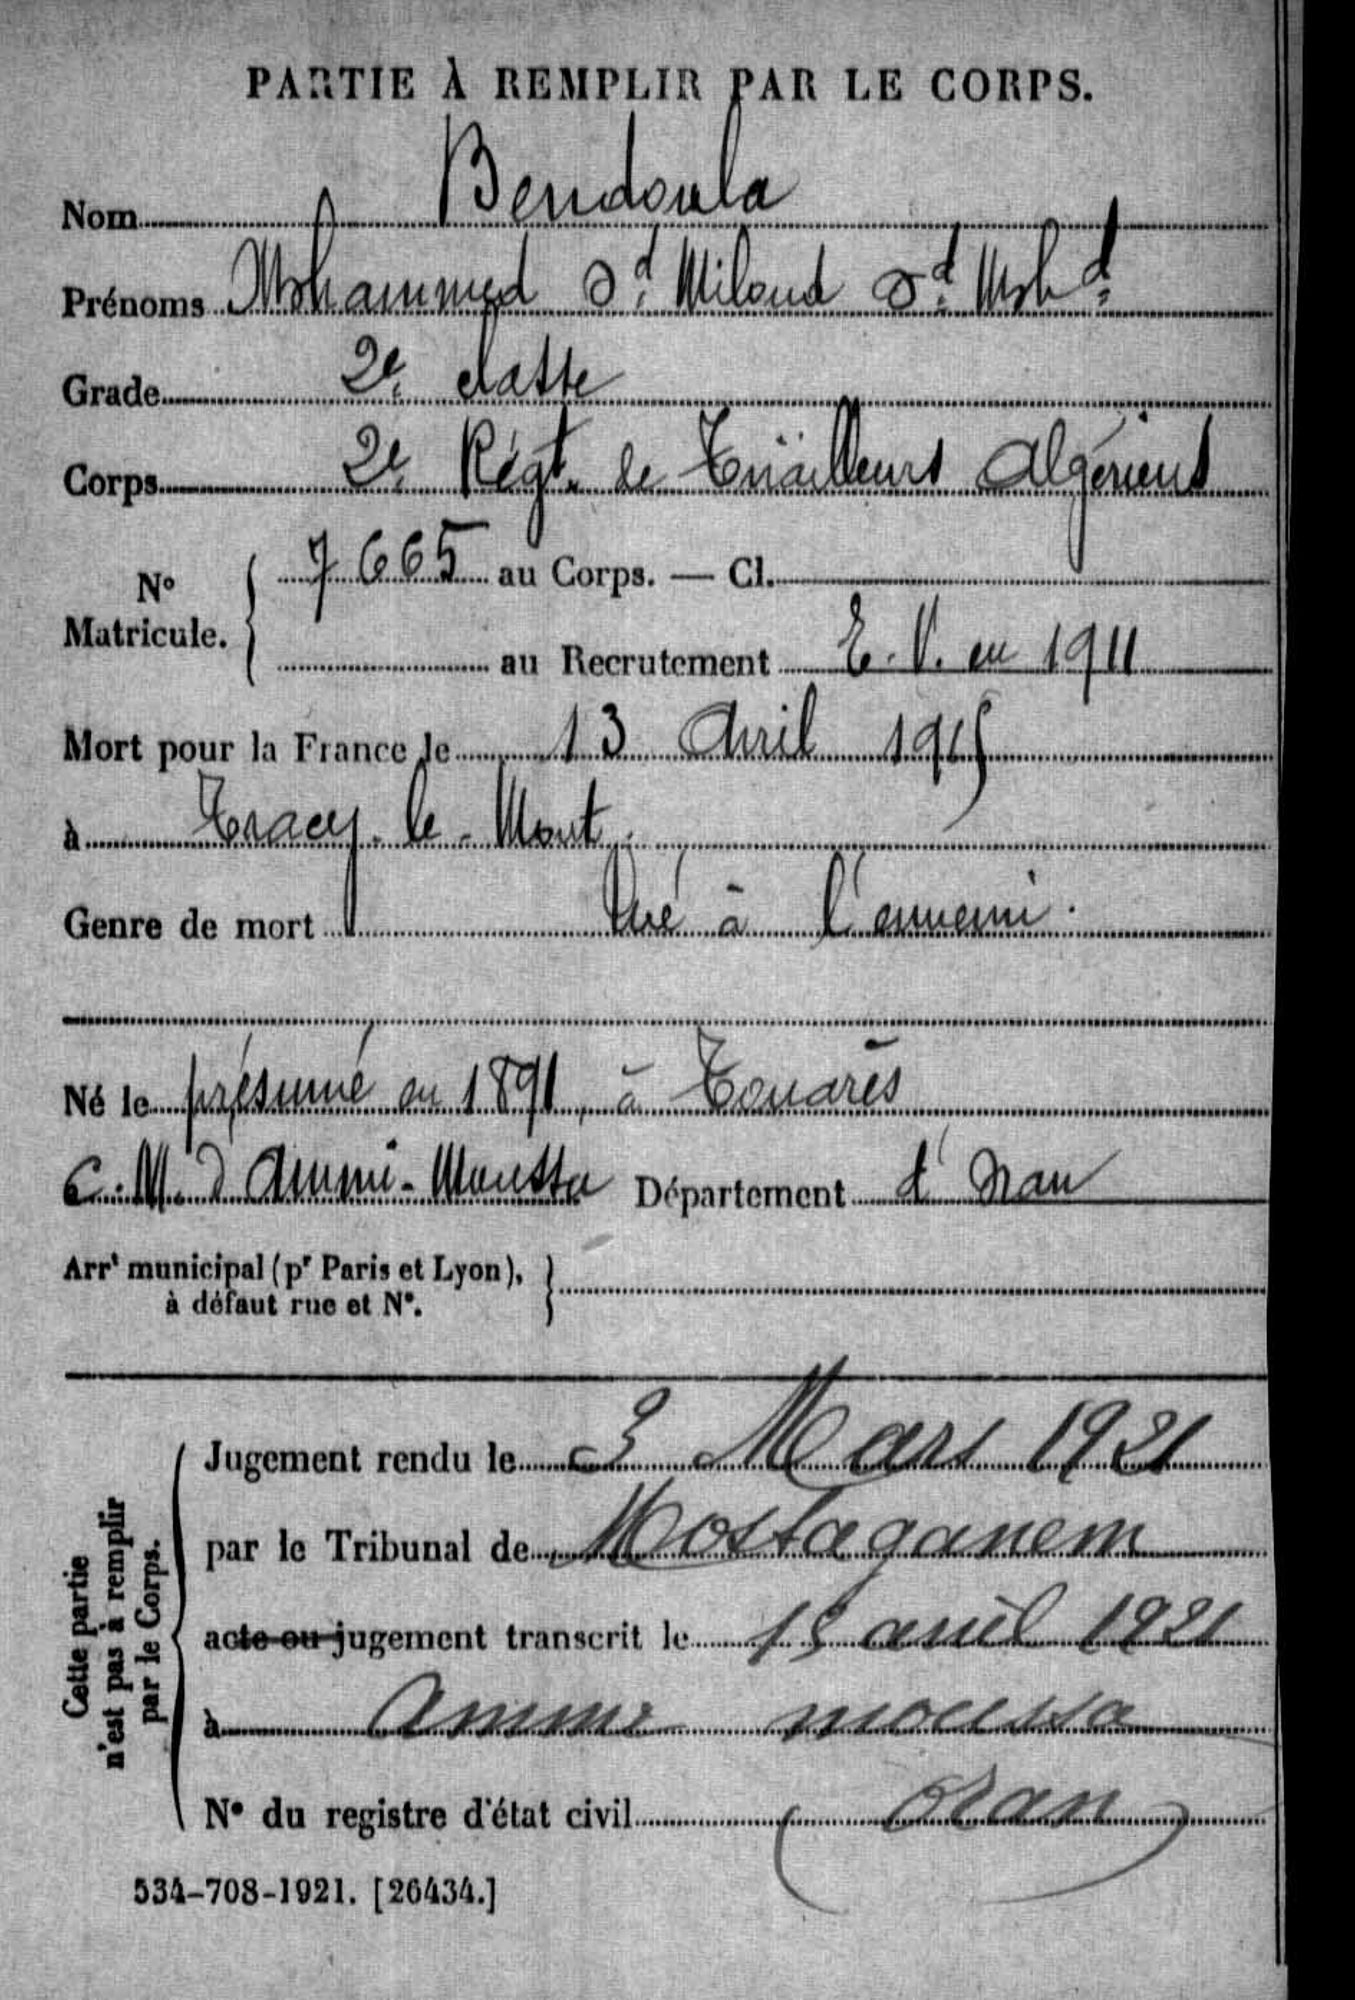 PARTIE À REMPLIR PAR LE CORPS.
Nom Bendoula
Prénoms Mohammed Od Miloud Od Mohd
Grade 2e classe
Corps 2e Régt. de Tirailleurs Algériens
No Matricule. 7665 au Corps. — Cl.
au Recrutement E. V. en 1911
Mort pour la France le 13 Avril 1915
à Tracy-le-Mont.
Genre de mort Tué à l'ennemi.
Né le présumé en 1891, à Touarès
C. M. d'Ammi-Moussa Département d'Oran
Arrt municipal (pr Paris et Lyon),
à défaut rue et No.
Cette partie
n'est pas à remplir
par le Corps.
Jugement rendu le 3 Mars 1921
par le Tribunal de Mostaganem
acte ou jugement transcrit le 15 avril 1921
à Ammi moussa
No du registre d'état civil (Oran)
534-708-1921. [26434.]